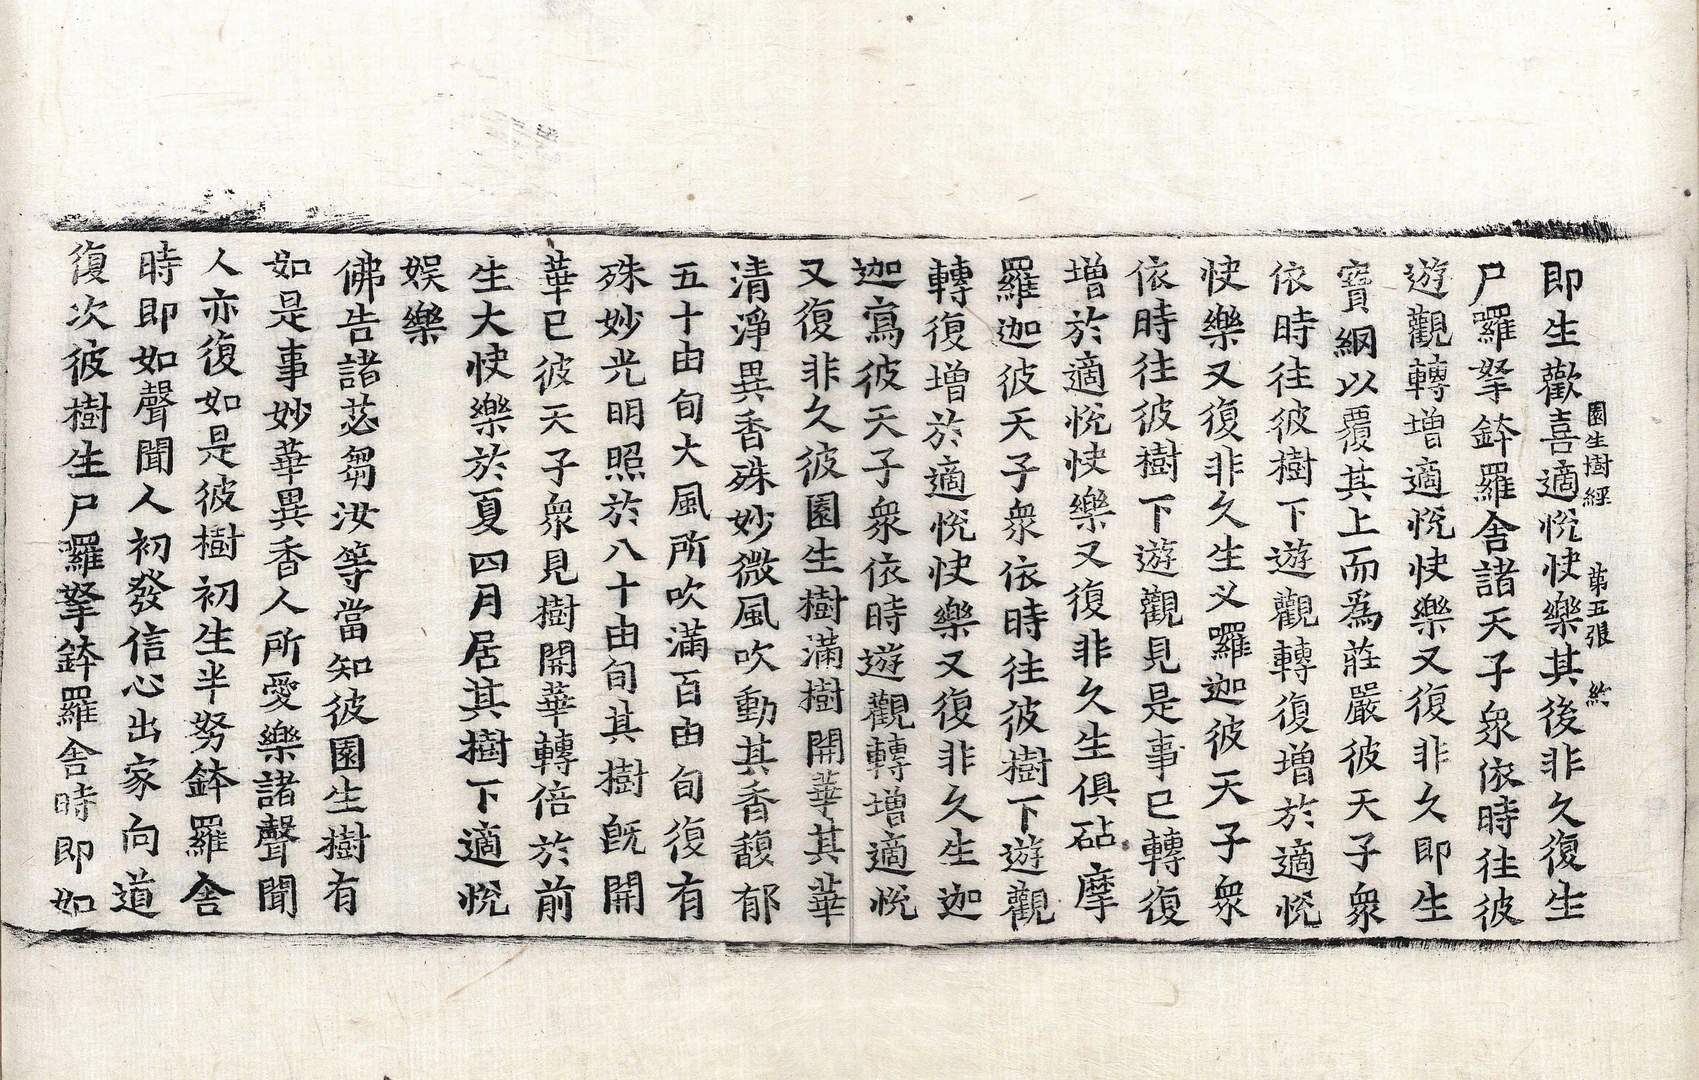 園生樹經 第五張
即生歡喜適悅快樂其後非久復生
尸囉拏鉢羅舍諸天子衆依時往彼
遊觀轉增適悅快樂又復非久即生
寶網以覆其上而爲莊嚴彼天子衆
依時往彼樹下遊觀轉復增於適悅
快樂又復非久生叉囉迦彼天子衆
依時往彼樹下遊觀見是事已轉復
增於適悅快樂又復非久生俱砧摩
羅迦彼天子衆依時往彼樹下遊觀
轉復增於適悅快樂又復非久生迦
迦寫彼天子衆依時遊觀轉增適悅
又復非久彼園生樹滿樹開華其華
清淨異香殊妙微風吹動其香馥郁
五十由旬大風所吹滿百由旬復有
殊妙光明照於八十由旬其樹旣開
華已彼天子衆見樹開華轉倍於前
生大快樂於夏四月居其樹下適悅
娛樂
佛告諸苾芻汝等當知彼園生樹有
如是事妙華異香人所愛樂諸聲聞
人亦復如是彼樹初生半努鉢羅舍
時即如聲聞人初發信心出家向道
復次彼樹生尸囉拏鉢羅舍時即如